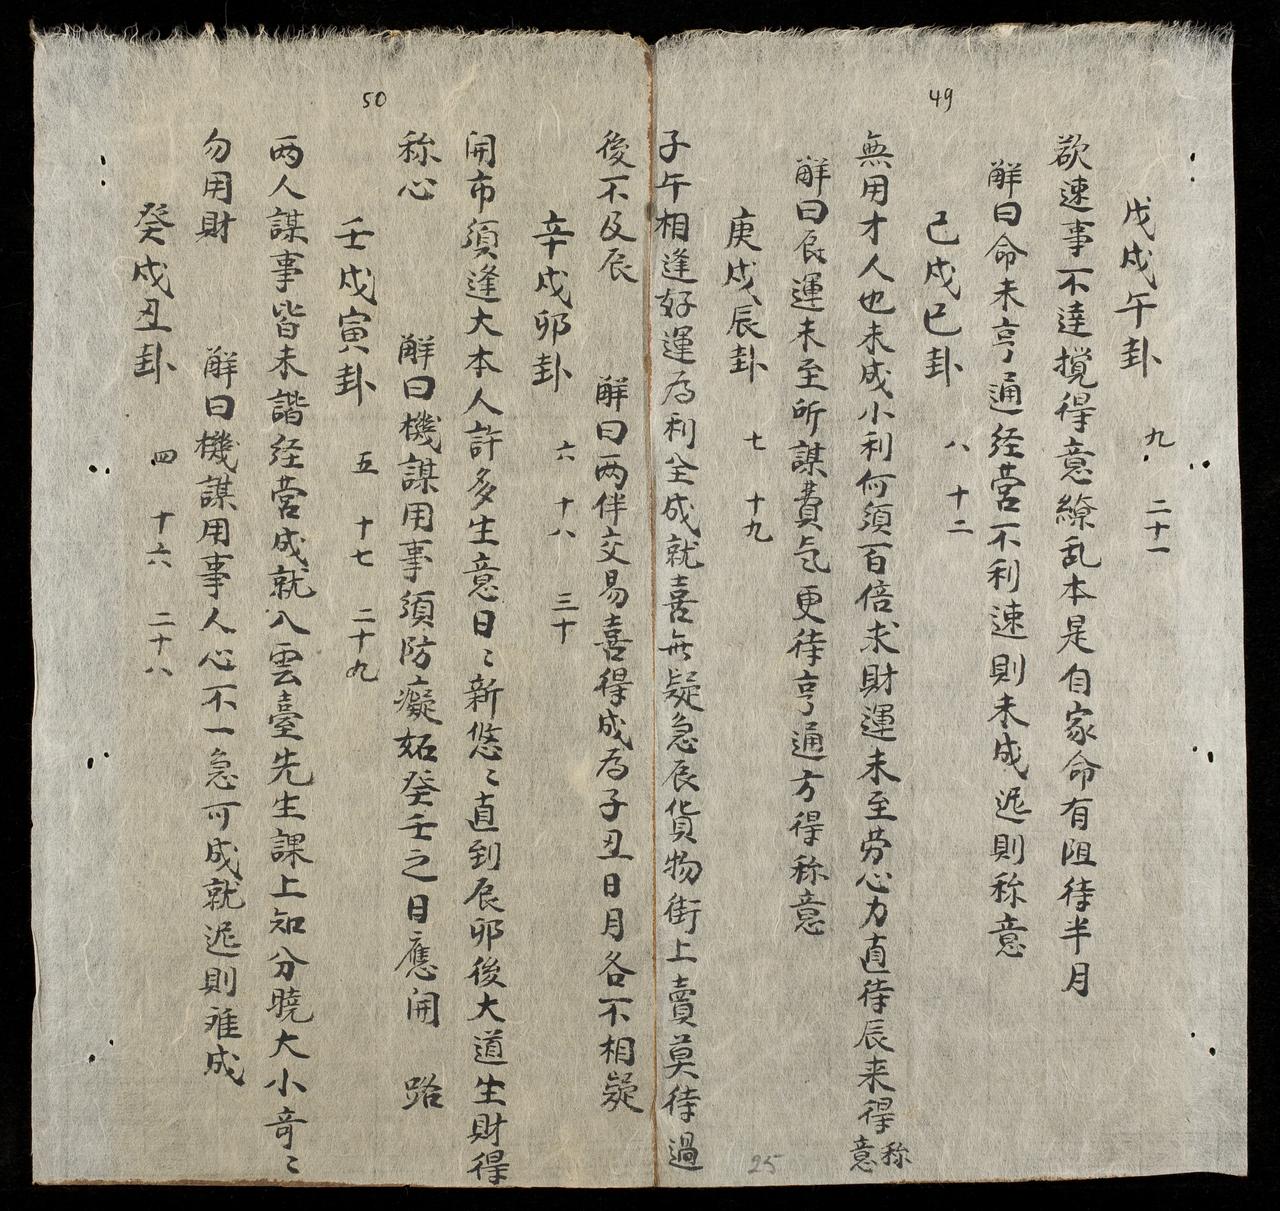 49
戊戌午卦 九 二十一
欲速事不達攪得意繚乱本是自家命有阻待半月
解曰命未亨通经营不利速則未成迟則称意
己戌巳卦 八 十二
無用才人也未成小利何須百倍求財運未至劳心力直待辰来得称意
解曰辰運未至所謀費气更待亨通方得称意
庚戌辰卦 七 十九
子午相逢好運為利全成就喜无疑急辰貨物街上賣莫待過
25
50
後不及辰 解曰两伴交易喜得成為子丑日月各不相疑
辛戌卯卦 六 十八 三十
開市須逢大本人許多生意日〻新悠〻直到辰卯後大道生財得
称心 解曰機謀用事須防癡妬癸壬之日應開 路
壬戌寅卦 五 十七 二十九
两人謀事皆未諧经营成就八雲臺先生課上知分曉大小奇〻
勿用財 解曰機謀用事人心不一急可成就迟則难成
癸戌丑卦 四 十六 二十八